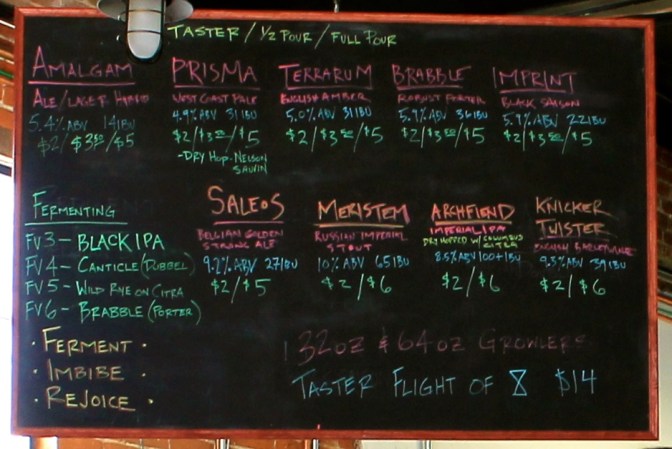 TASTER / ½ POUR / FULL POUR
AMALGAM
ALE / LAGER HYBRID
5.4% ABV 14 IBU
$2 / $3.50 / $5
PRISMA
WEST COAST PALE
4.9% ABV 31 IBU
$2 / $3.50 / $5
-DRY HOP-NELSON
SAUVIN
TERRARUM
ENGLISH AMBER
5.0% ABV 31 IBU
$2 / $3.50 / $5
BRABBLE
ROBUST PORTER
5.7% ABV 36 IBU
$2 / $3.50 / $5
IMPRINT
BLACK SAISON
5.7% ABV 22 IBU
$2 / $3.50 / $5
FERMENTING
FV3 - BLACK IPA
FV4 - CANTICLE (DUBBEL)
FV5 - WILD RYE ON CITRA
FV6 - BRABBLE (PORTER)
· FERMENT ·
· IMBIBE ·
· REJOICE ·
SALEOS
BELGIAN GOLDEN
STRONG ALE
9.2% ABV 27 IBU
$2 / $5
MERISTEM
RUSSIAN IMPERIAL
STOUT
10% ABV 65 IBU
$2 / $6
ARCHFIEND
IMPERIAL IPA
DRY HOPPED W/ COLUMBUS
CITRA
8.5% ABV 100+ IBU
$2 / $6
KNICKER
TWISTER
ENGLISH BARLEYWINE
9.3% ABV 39 IBU
$2 / $6
32 OZ & 64 OZ GROWLERS
TASTER FLIGHT OF 8 $14